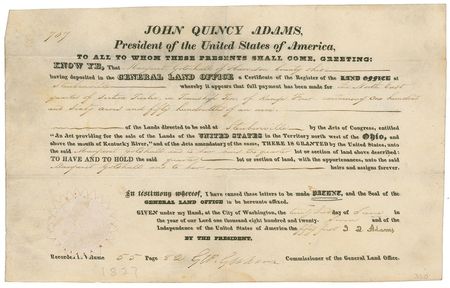 707
JOHN QUINCY ADAMS,
President of the United States of America,
TO ALL TO WHOM THESE PRESENTS SHALL COME, GREETING:
KNOW YE, That
having deposited in the GENERAL LAND OFFICE a Certificate of the Register of the LAND OFFICE at
Steubenville whereby it appears that full payment has been made for the North East
quarter of Section Twelve in Township Ten of Range Four containing One hundred
and Sixty
of the Lands directed to be sold at Steubenville by the Acts of Congress, entitled
"An Act providing for the sale of the Lands of the UNITED STATES in the Territory north west of the Ohio, and
above the mouth of Kentucky River," and of the Acts amendatory of the same, THERE IS GRANTED by the United States, unto
the said Margaret the quarter lot or section of land above described:
TO HAVE AND TO HOLD the said quarter lot or section of land, with the appurtenances, unto the said
Margaret and to her heirs and assigns forever.
In testimony whereof, I have caused these letters to be made PATENT, and the Seal of the
GENERAL LAND OFFICE to be hereunto affixed.
GIVEN under my Hand, at the City of Washington, the day of June in the
year of our Lord one thousand eight hundred and twenty and of the
Independence of the United States of America the fifty first J. Q. Adams
BY THE PRESIDENT,
Recorded, Volume 55 Page Commissioner of the General Land Office.
1827